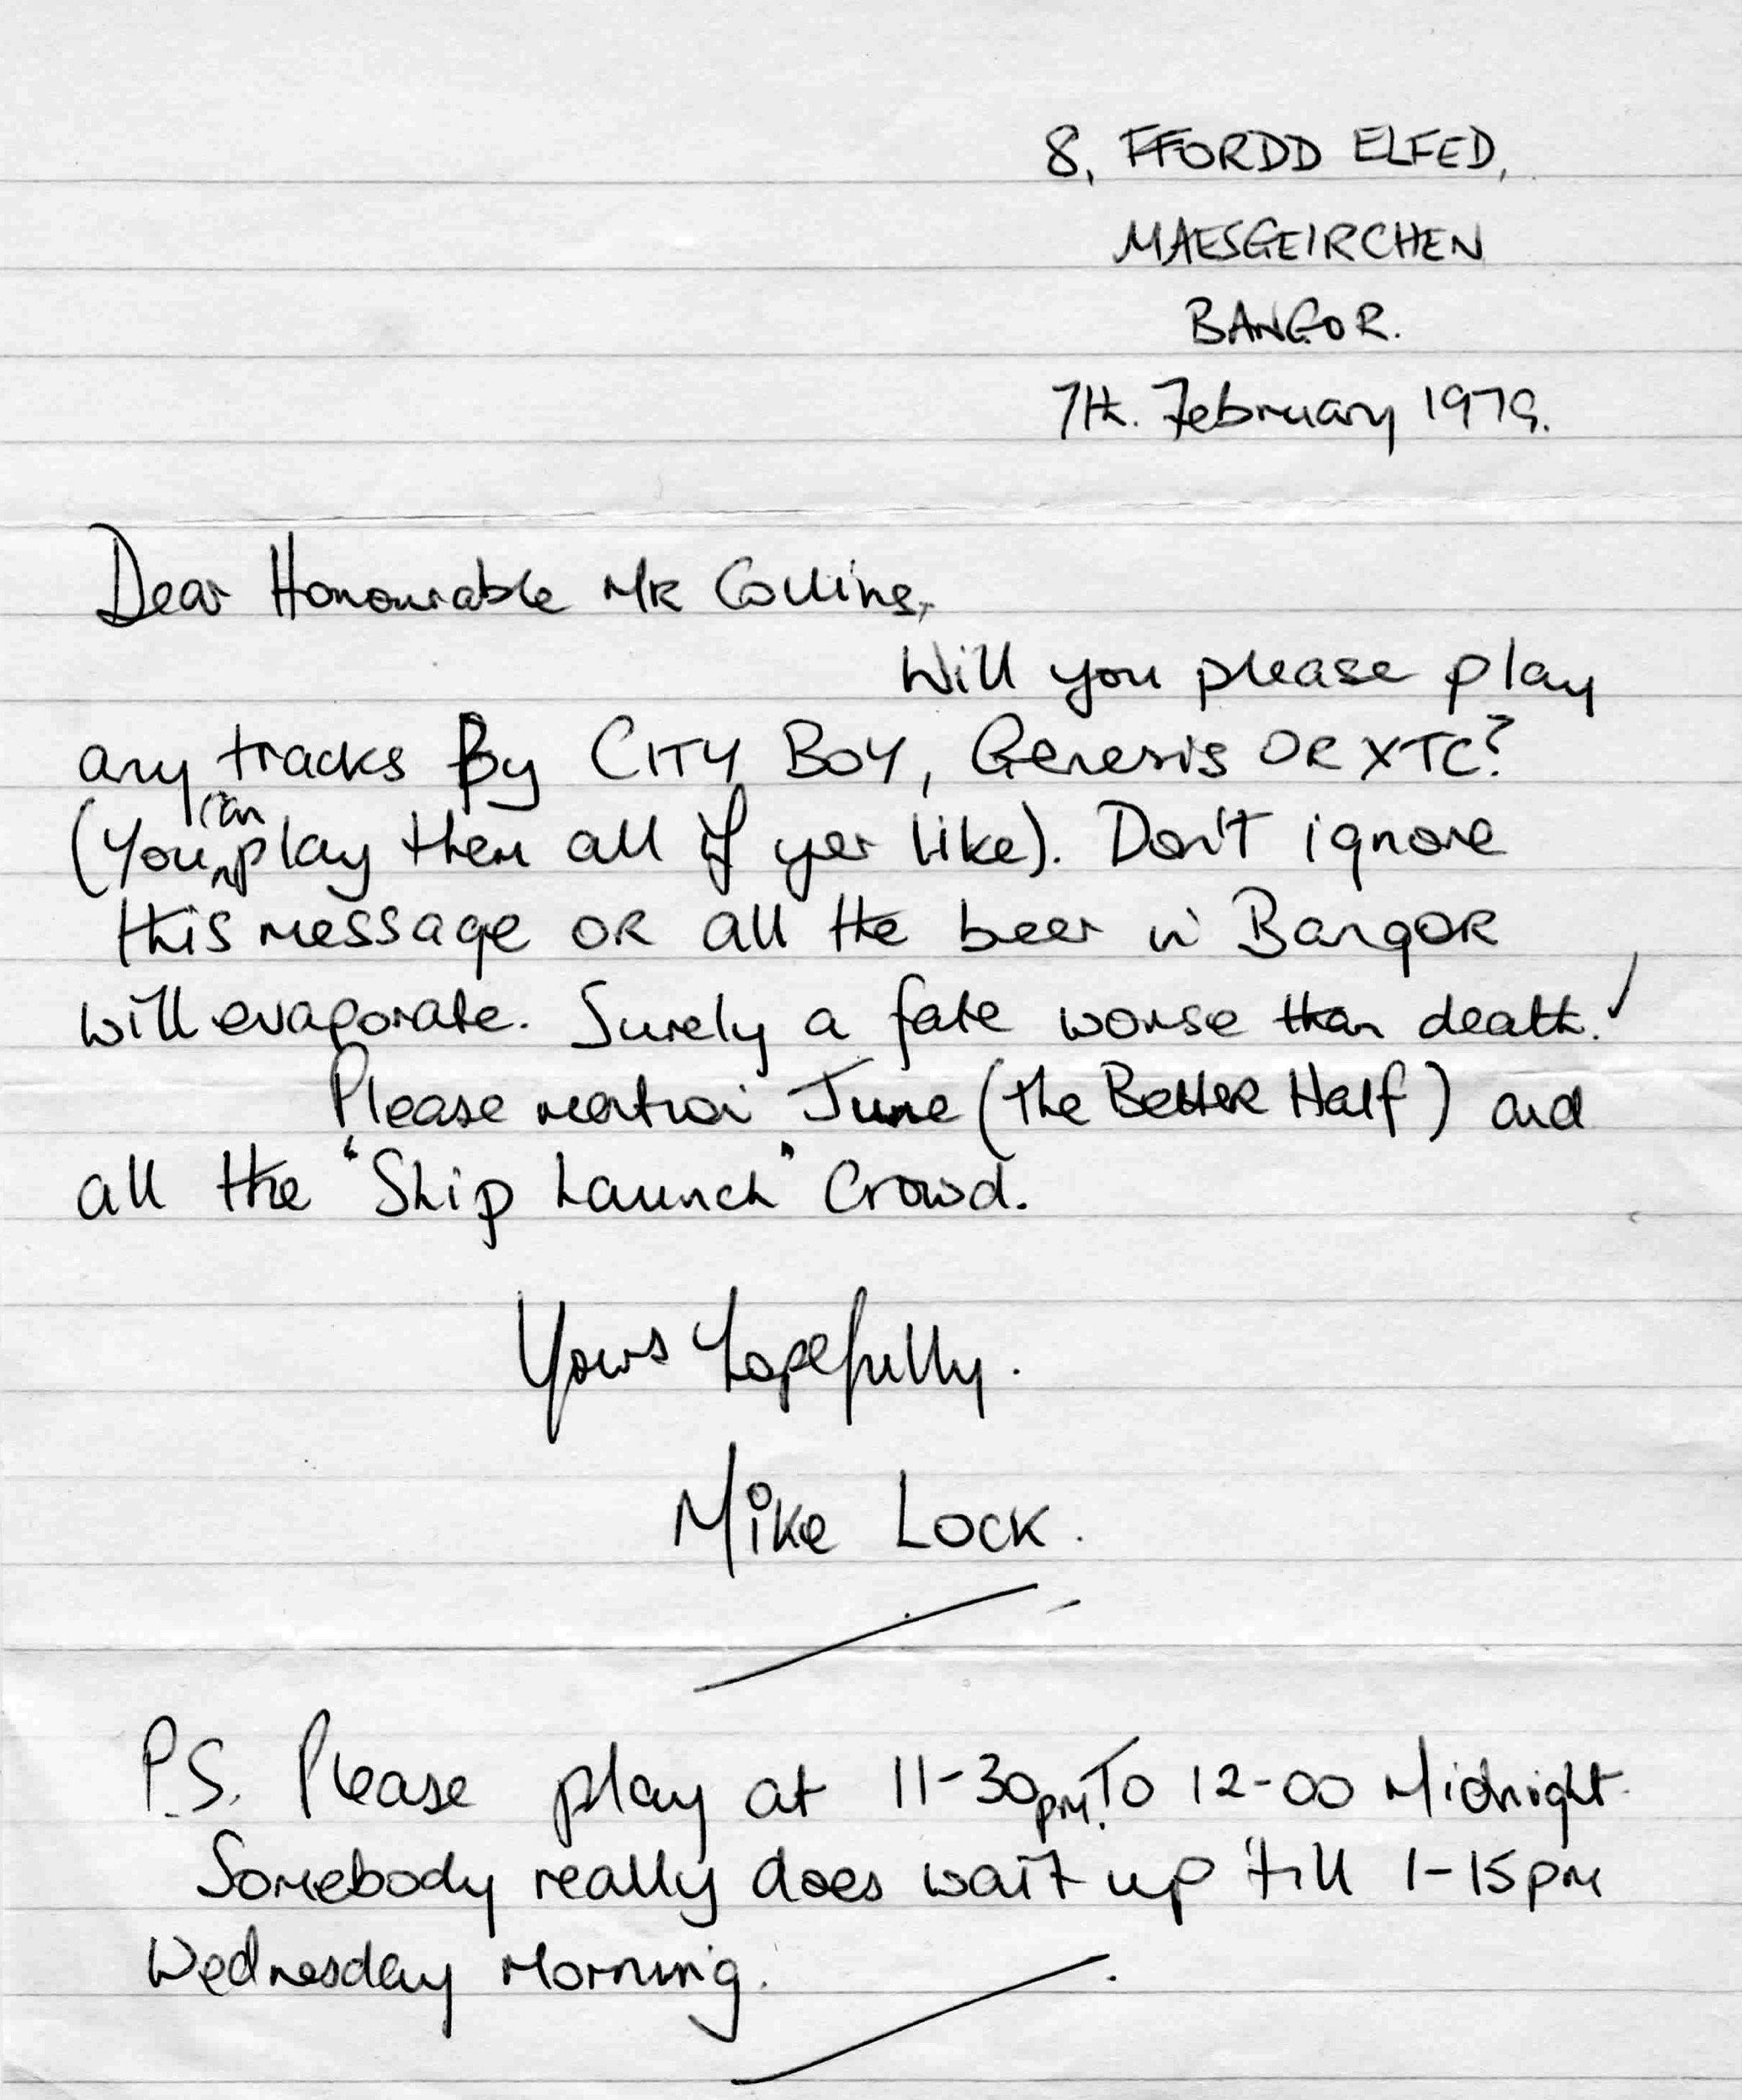 8, FFORDD ELFED,
MAESGEIRCHEN
BANGOR.
7th. February 1979.
Dear Honourable MR Collins,
Will you please play
any tracks By CITY BOY, Genesis OR XTC?
(You can play them all if yer like). Don't ignore
this message OR all the beer in BangOR
will evaporate. Surely a fate worse than death!
Please mention June (the Better Half) and
all the "Ship Launch" Crowd.
Yours hopefully.
Mike Lock.
P.S. Please play at 11-30pm. To 12-00 Midnight.
Somebody really does wait up 'till 1-15pm
Wednesday Morning.